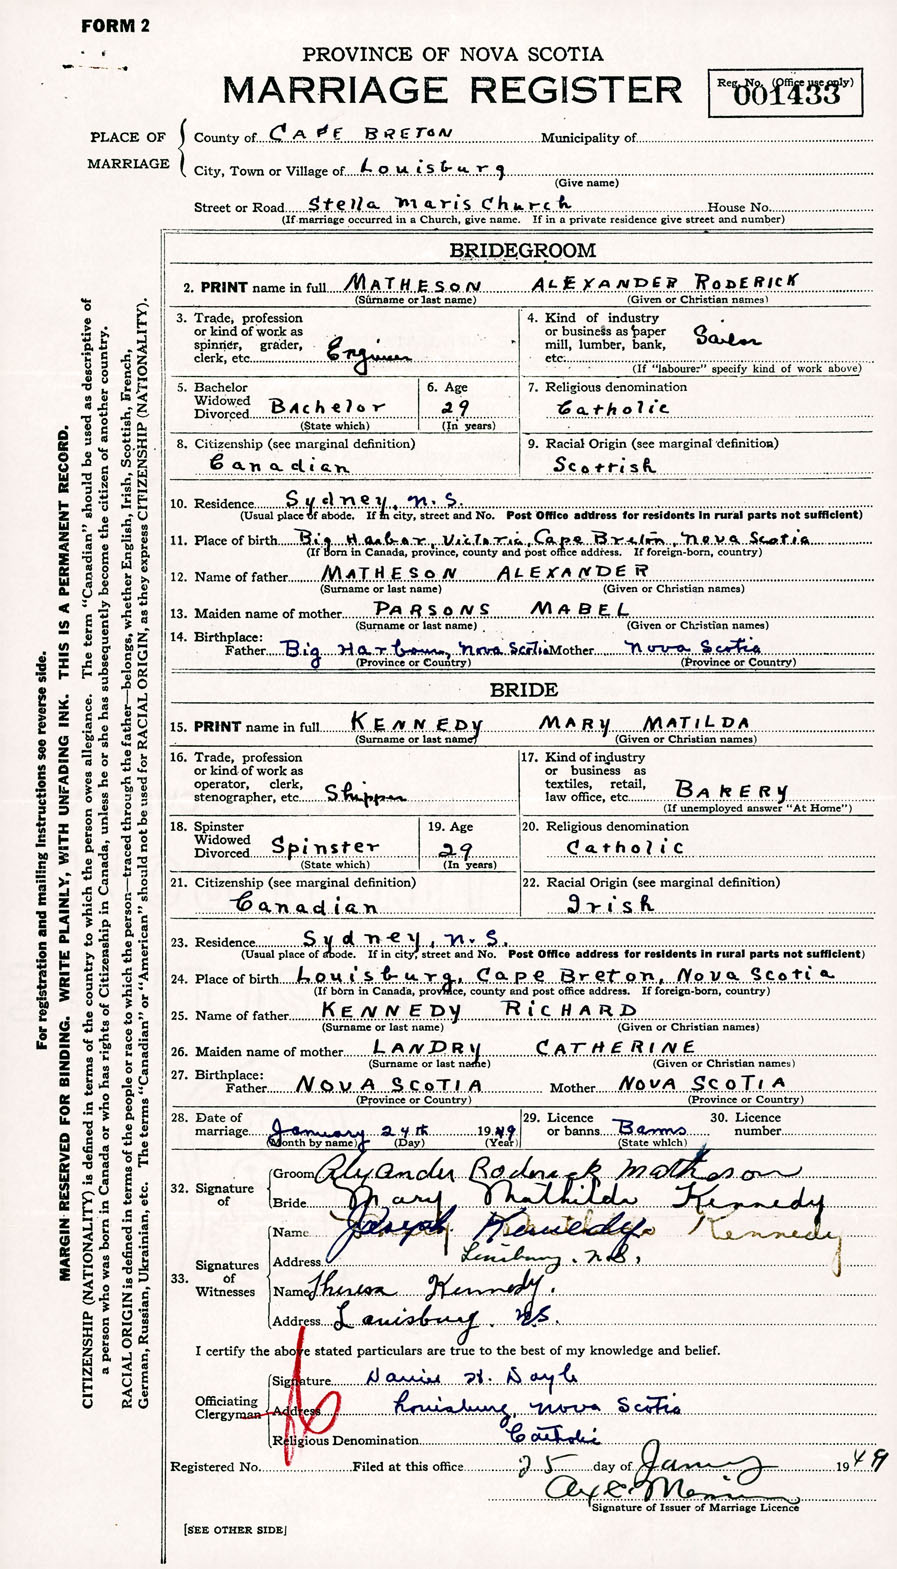 FORM 2
PROVINCE OF NOVA SCOTIA
MARRIAGE REGISTER
Reg. No. (Office use only)
001433
PLACE OF MARRIAGE
County of CAPE BRETON Municipality of
City, Town or Village of Louisburg
(Give name)
Street or Road Stella Maris Church House No.
(If marriage occurred in a Church, give name. If in a private residence give street and number)
For registration and mailing instructions see reverse side.
MARGIN RESERVED FOR BINDING. WRITE PLAINLY, WITH UNFADING INK. THIS IS A PERMANENT RECORD.
CITIZENSHIP (NATIONALITY) is defined in terms of the country to which the person owes allegiance. The term "Canadian" should be used as descriptive of
a person who was born in Canada or who has rights of Citizenship in Canada, unless he or she has subsequently become the citizen of another country.
RACIAL ORIGIN is defined in terms of the people or race to which the person—traced through the father—belongs, whether English, Irish, Scottish, French,
German, Russian, Ukrainian, etc. The terms "Canadian" or "American" should not be used for RACIAL ORIGIN, as they express CITIZENSHIP (NATIONALITY).
BRIDEGROOM
2. PRINT name in full MATHESON ALEXANDER RODERICK
(Surname or last name) (Given or Christian names)
3. Trade, profession
or kind of work as
spinner, grader,
clerk, etc. Engineer
4. Kind of industry
or business as paper
mill, lumber, bank,
etc. Sailor
(If "labourer" specify kind of work above)
5. Bachelor
Widowed
Divorced Bachelor
(State which)
6. Age
29
(In years)
7. Religious denomination
Catholic
8. Citizenship (see marginal definition)
Canadian
9. Racial Origin (see marginal definition)
Scottish
10. Residence Sydney, N.S.
(Usual place of abode. If in city, street and No. Post Office address for residents in rural parts not sufficient)
11. Place of birth Big Harbor, Victoria, Cape Breton, Nova Scotia
(If born in Canada, province, county and post office address. If foreign-born, country)
12. Name of father MATHESON ALEXANDER
(Surname or last name) (Given or Christian names)
13. Maiden name of mother PARSONS MABEL
(Surname or last name) (Given or Christian names)
14. Birthplace:
Father Big Harbour, Nova Scotia Mother Nova Scotia
(Province or Country) (Province or Country)
BRIDE
15. PRINT name in full KENNEDY MARY MATILDA
(Surname or last name) (Given or Christian names)
16. Trade, profession
or kind of work as
operator, clerk,
stenographer, etc. Shipper
17. Kind of industry
or business as
textiles, retail,
law office, etc. BAKERY
(If unemployed answer "At Home")
18. Spinster
Widowed
Divorced Spinster
(State which)
19. Age
29
(In years)
20. Religious denomination
Catholic
21. Citizenship (see marginal definition)
Canadian
22. Racial Origin (see marginal definition)
Irish
23. Residence Sydney, N.S.
(Usual place of abode. If in city, street and No. Post Office address for residents in rural parts not sufficient)
24. Place of birth Louisburg, Cape Breton, Nova Scotia
(If born in Canada, province, county and post office address. If foreign-born, country)
25. Name of father KENNEDY RICHARD
(Surname or last name) (Given or Christian names)
26. Maiden name of mother LANDRY CATHERINE
(Surname or last name) (Given or Christian names)
27. Birthplace:
Father NOVA SCOTIA Mother NOVA SCOTIA
(Province or Country) (Province or Country)
28. Date of
marriage January 24th 1949
(Month by name) (Day) (Year)
29. Licence
or banns Banns
(State which)
30. Licence
number
32. Signature of
Groom Alexander Roderick Matheson
Bride Mary Mathilda Kennedy
33. Signatures of Witnesses
Name Joseph Kennedy Kennedy
Address Louisburg, N.S.
Name Theresa Kennedy.
Address Louisburg, N.S.
I certify the above stated particulars are true to the best of my knowledge and belief.
Officiating Clergyman
Signature Daniel H. Doyle
Address Louisburg, Nova Scotia
Religious Denomination Catholic
Registered No. Filed at this office 25 day of January 1949
Signature of Issuer of Marriage Licence
[SEE OTHER SIDE]